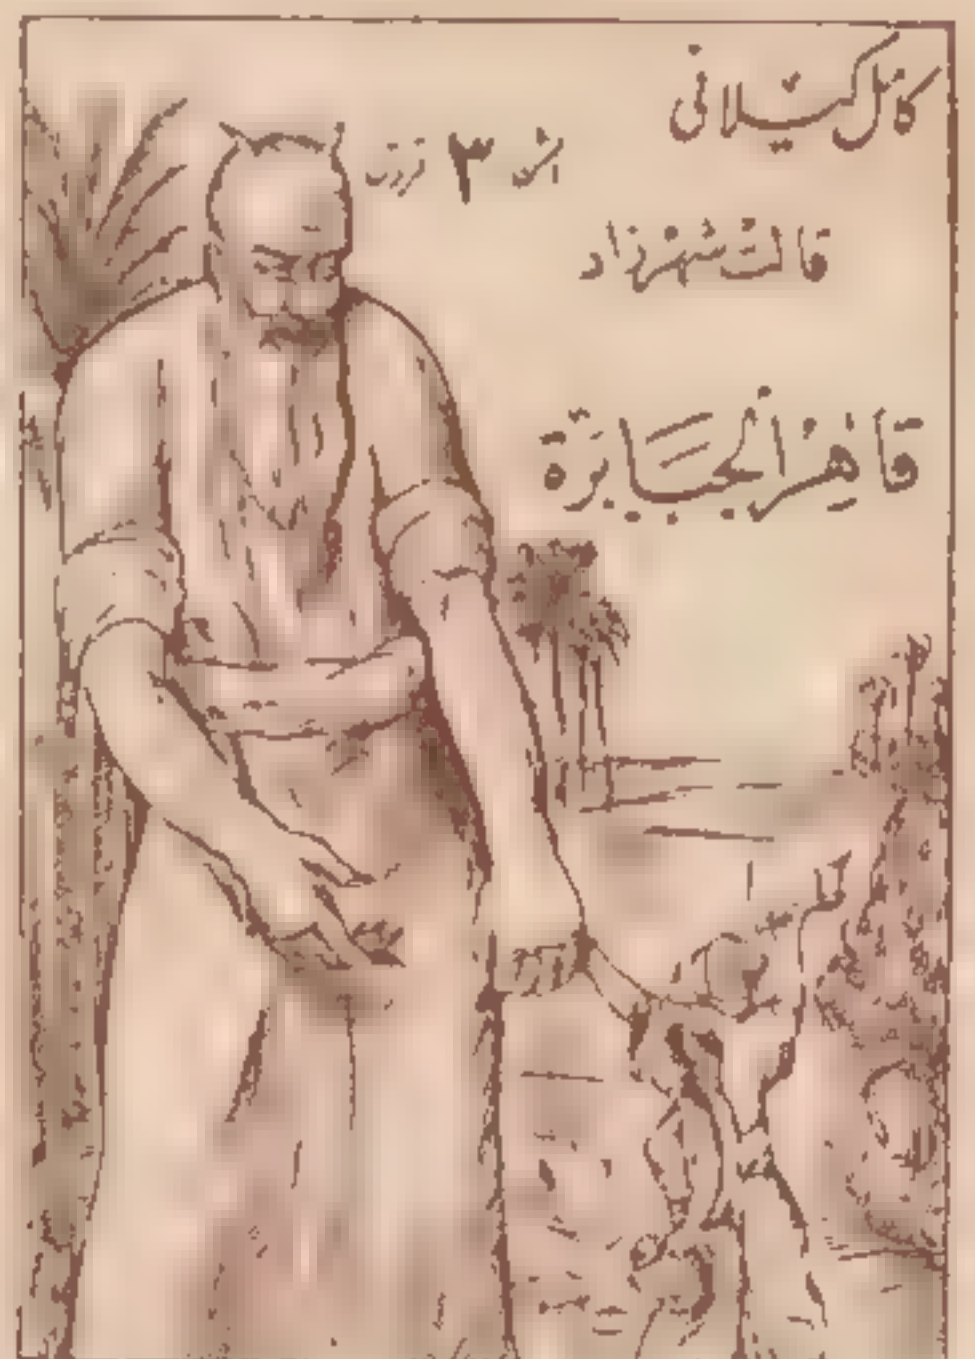 كامل كيلاني
الثمن ٣ قروش
قالت شهرزاد
قاهر الجبابرة